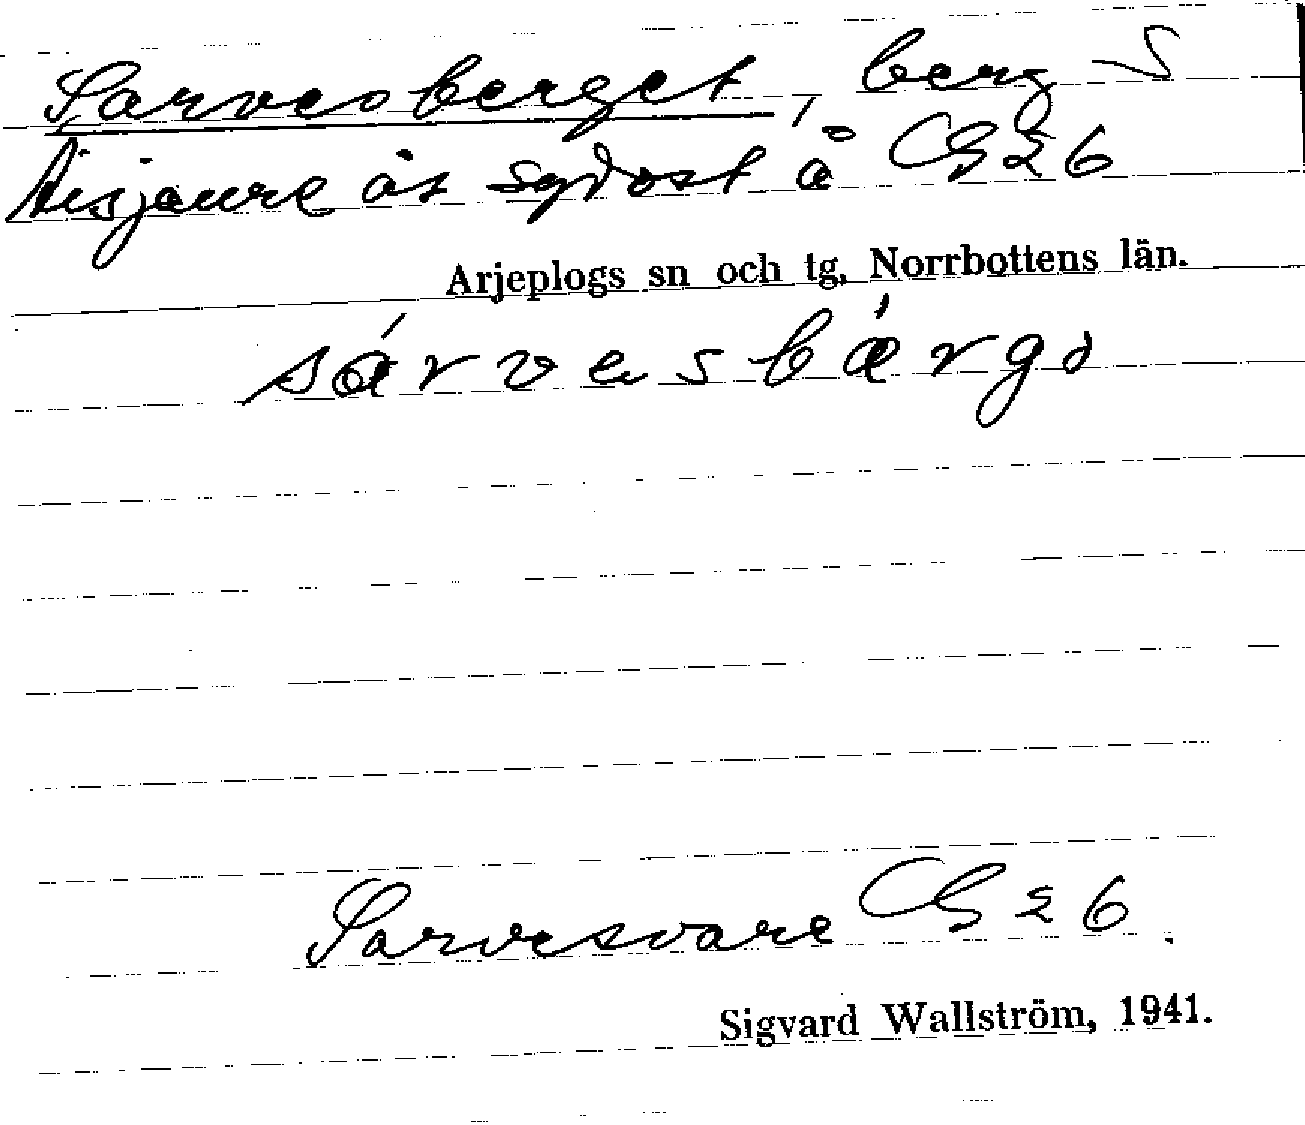 Sarvesberget, berg S
Aisjaure åt sydost å GS 26
Arjeplogs sn och tg, Norrbottens län.
sárvesbǽrgə
Sarvesvare GS 26.
Sigvard Wallström, 1941.